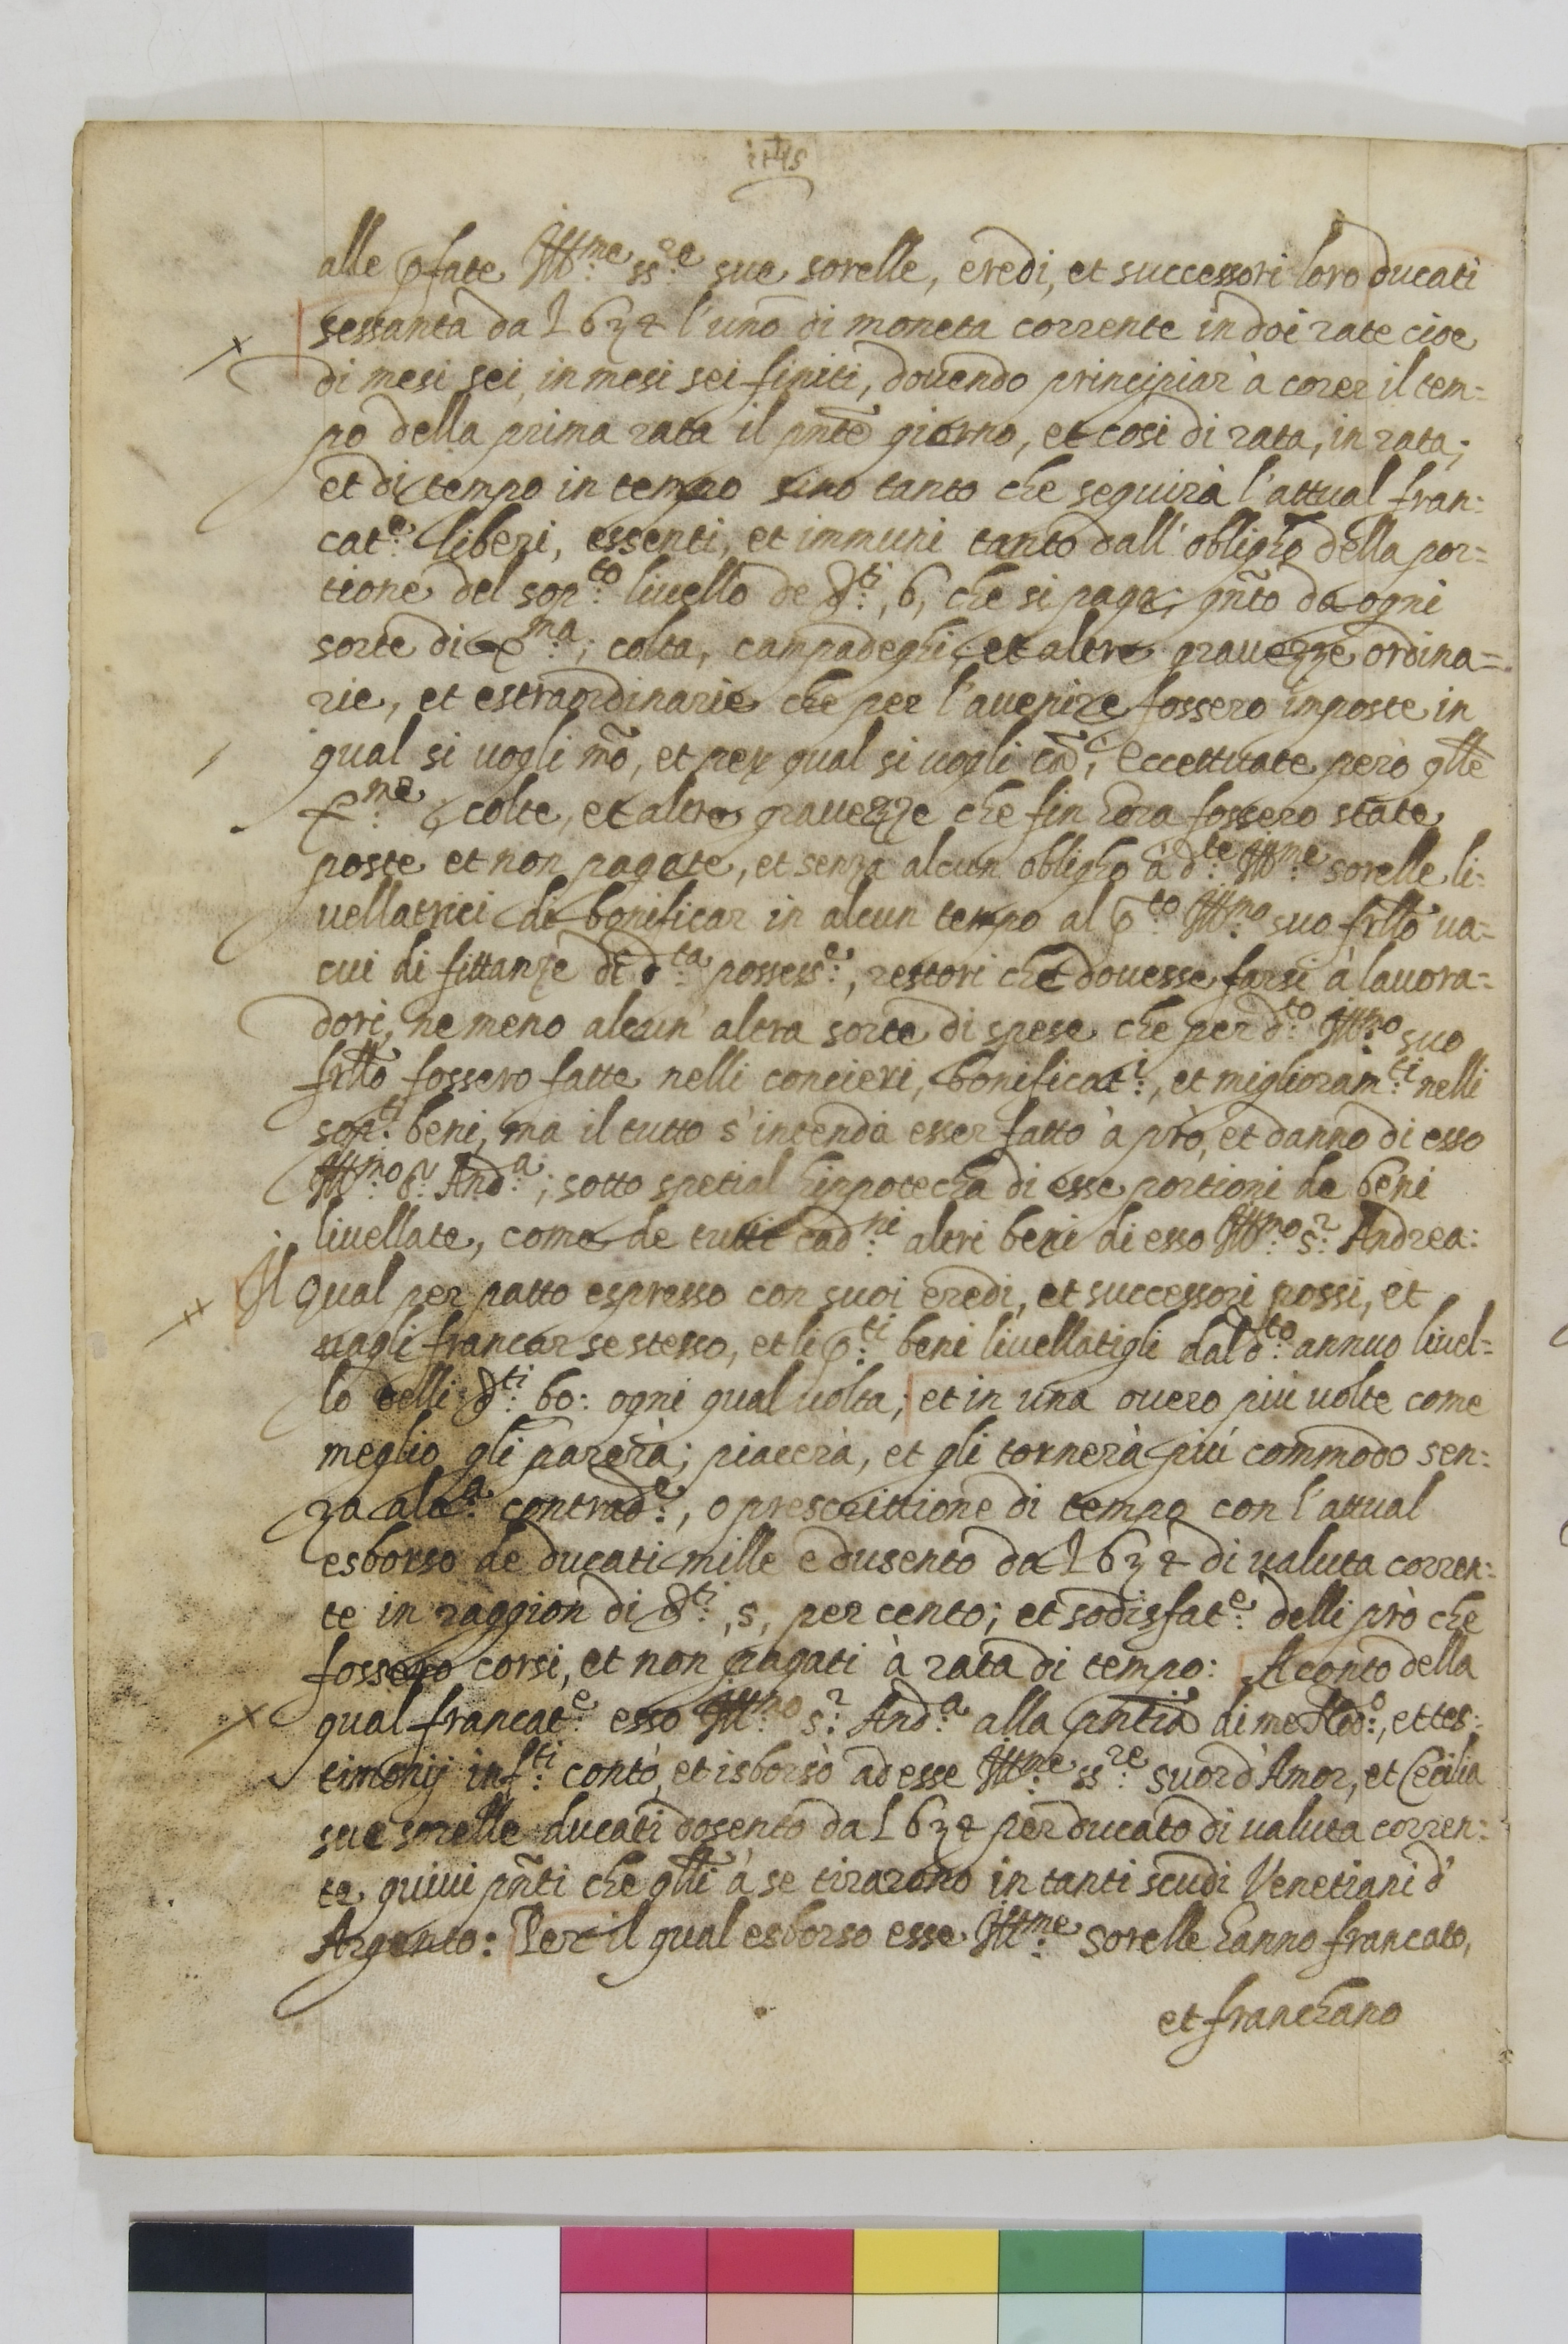 IHS
alle p̄fate Ill:me ss:re sue sorelle, eredi, et successori loro ducati
sessanta da L 6 3 4 l'uno di moneta corrente in doi rate cioe
di mesi sei, in mesi sei finiti, douendo principiar à corer il tem=
po della prima rata il pnt̄e giorno, et cosi di rata, in rata;
et di tempo in tempo sino tanto che seguirà l'attual fran:
cat:e liberi, essenti, et immuni tanto dall' obligho della por=
tione del sop:to liuello de d:ti, 6, che si paga; qñto da ogni
sorte di X:ma; colta, campadeghi, et altre grauezze ordina=
rie, et estraordinarie che per l'auenire fossero imposte in
qual si uogli mō, et per qual si uogli cā, eccettuate però qlle
X:me colte, et altre grauezze che fin hora fossero state
poste et non pagate, et senza alcun obligho à d:te Ill:me sorelle li:
uellatrici di bonificar in alcun tempo al p:to Ill:mo suo frllo ua=
cui di fittanze di d:ta possess:e, restori che douesse farsi à lauora=
dori, ne meno alcun' altra sorte di spese che per d:to Ill:mo suo
frllo fossero fatte nelli concieri, bonificat:i, et miglioram:ti nelli
sop:ti beni, ma il tutto s'intenda esser fatto à prò, et danno di esso
Ill:mo S:r And:a; sotto spetial hippotecha di esse portioni de beni
liuellate, come de tutti cad:ni altri beni di esso Ill:mo S:r Andrea:
Il qual per patto espresso con suoi eredi, et successori possi, et
uagli francar se stesso, et li p:ti beni liuellatigli dal d:to annuo liuel=
lo delli d:ti 60: ogni qual uolta; et in una ouero più uolte come
meglio gli parerà; piacerà, et gli tornerà più commodo sen:
za alc:a contrad:e, o prescrittione di tempo con l'attual
esborso de ducati mille e dusento da L 6 3 4 di ualuta corren:
te in raggion di d:ti, 5, per cento; et sodisfat:e delli prò che
fossero corsi, et non pagati à rata di tempo: A conto della
qual francat:e esso Ill:mo S:r And:a alla pn̄tia di me Nod:o, et tes:
timonij inf:ti contò, et isborsò ad esse Ill:me ss:re Suor d'Amor, et Cecilia
sue sorelle ducati dosento da L 6 3 4 per ducato di ualuta corren:
te quiui pñti che qlli à se tirarono in tanti scudi Venetiani d'
Argento: Per il qual esborso esse Ill:me sorelle hanno francato,
et franchano